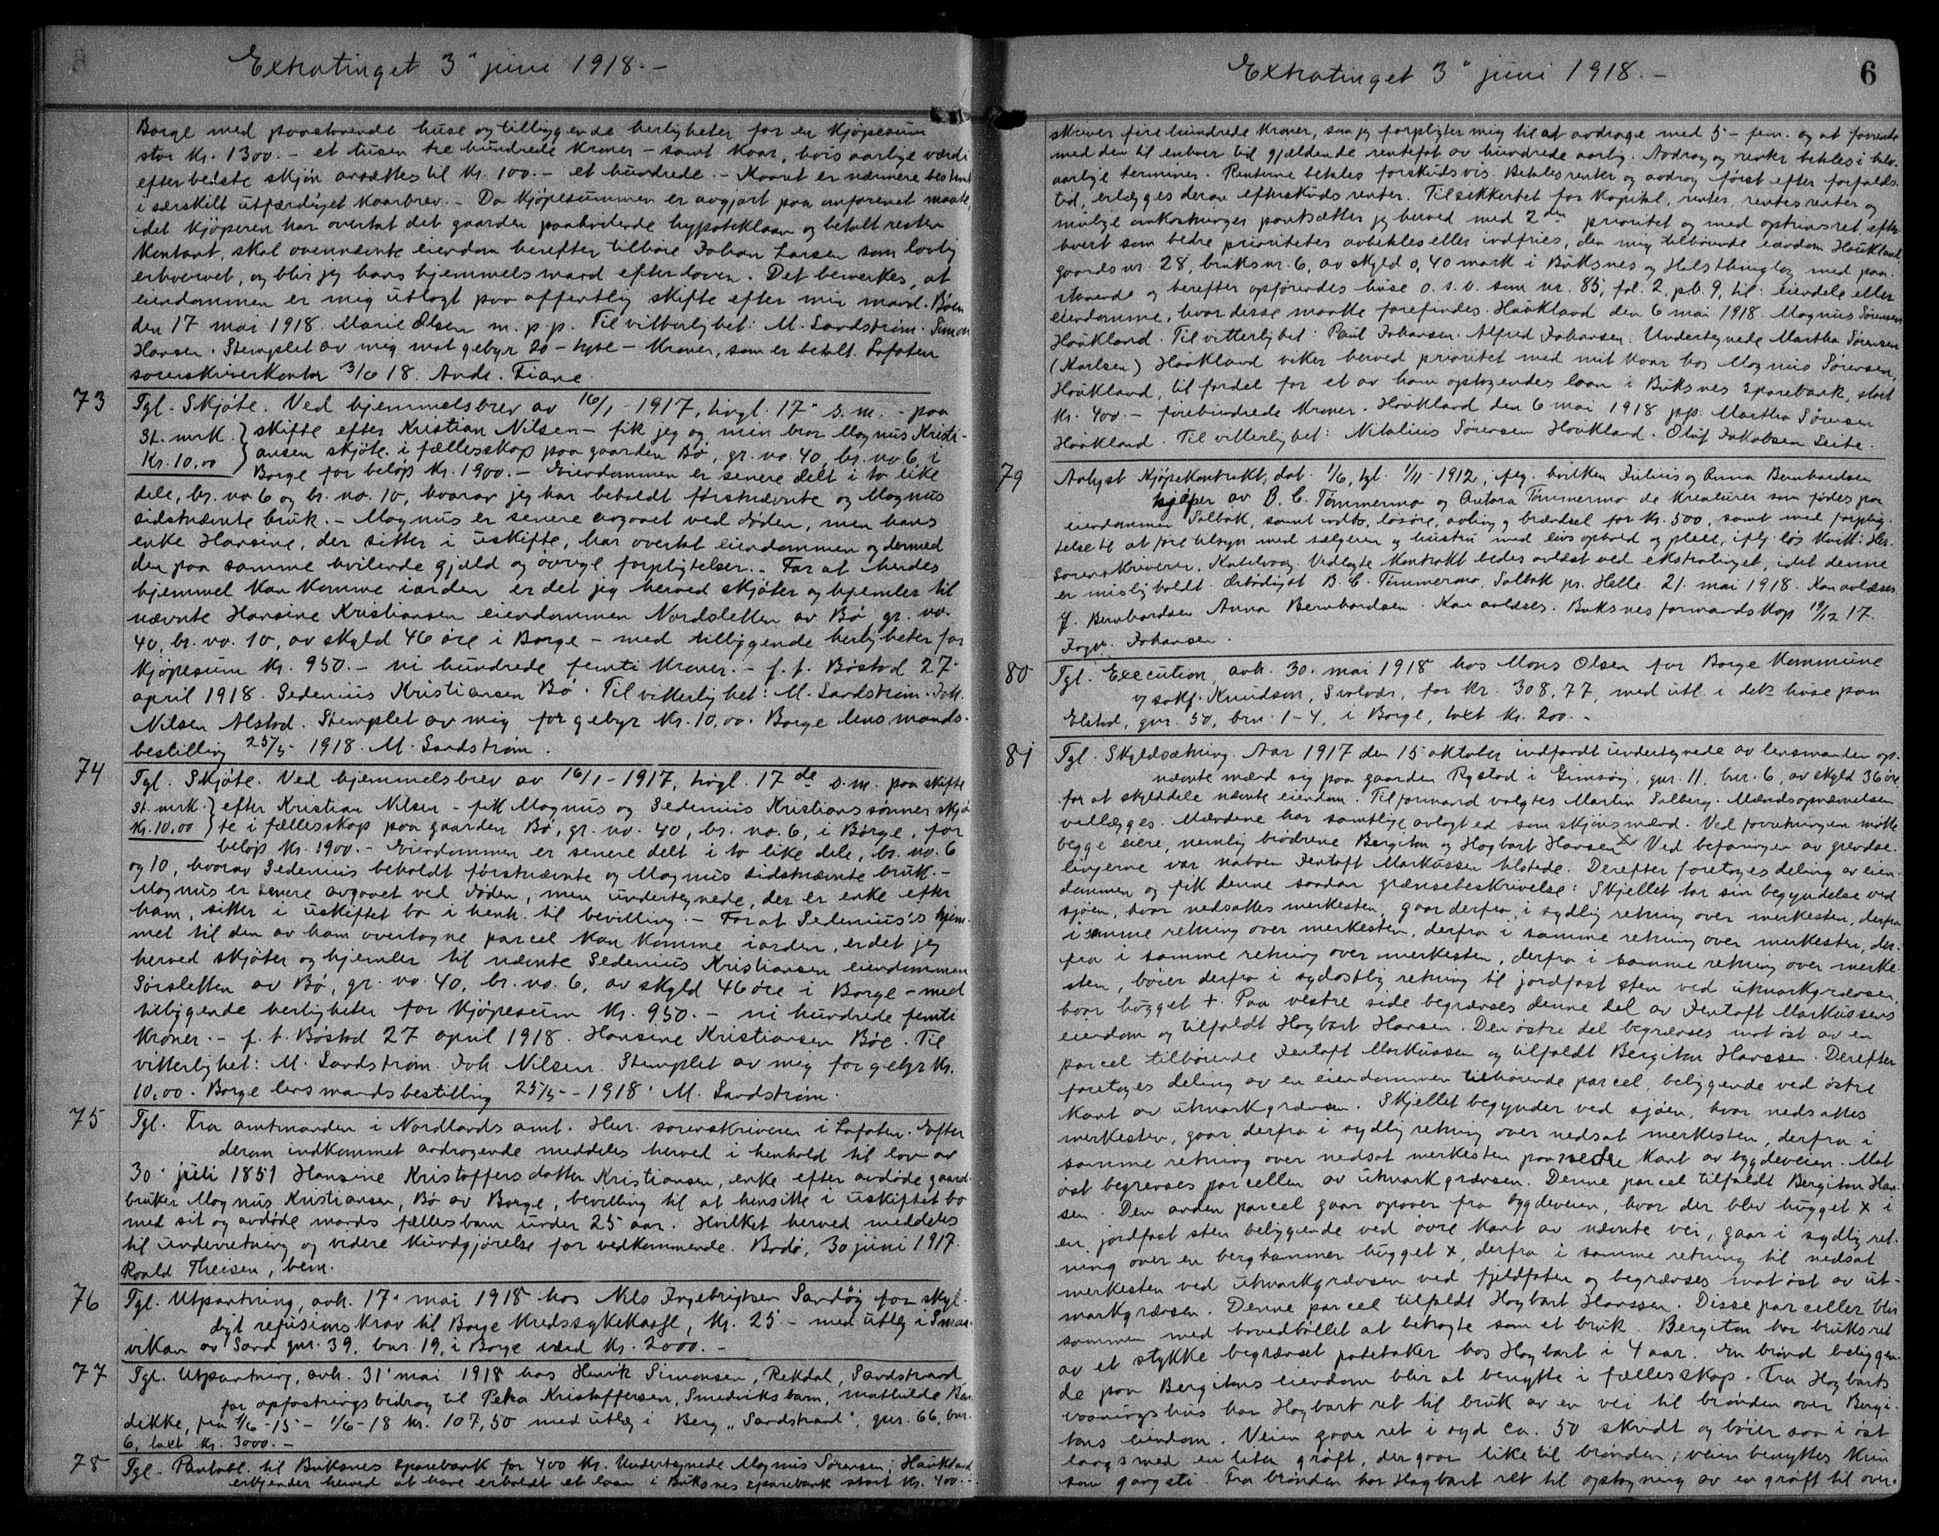 Extratinget 3' juni 1918.-
Borge med paastaaende huse og tilliggende herligheter for en kjøpesum
stor kr. 1300.- et tusen tre hundrede kroner - samt kaar, hvis aarlige værdi
efter bedste skjøn ansættes til kr. 100.- et hundrede.- Kaaret er nærmere bestemt
i særskilt utfærdiget kaarbrev.- Da kjøpesummen er avgjort paa omforenet maate,
idet kjøperen har overtat det gaarden paahvilende hypoteklaan og betalt resten
kontant, skal ovennævnte eiendom herefter tilhøre Johan Larsen som lovlig
erhvervet, og blir jeg hans hjemmelsmand efter loven. Det bemerkes, at
eiendommen er mig utlagt paa offentlig skifte efter min mand. Bøen
den 17 mai 1918. Marie Olsen m. p. p. Til vitterlighet: M. Sandstrøm. Simon
Hansen. Stemplet av mig mot gebyr 20 - tyve - kroner, som er betalt. Lofoten
sorenskriverkontor 3/6 18. Andr. Fiane.
73 Tgl. Skjøte. Ved hjemmelsbrev av 16/1-1917, tingl. 17' s.m. - paa
St. mrk. } skifte efter Kristian Nilsen - fik jeg og min bror Magnus Kristi-
Kr. 10,00 } ansen skjøte i fællesskap paa gaarden Bø, gr. no. 40, br. no. 6, i
Borge for beløp kr. 1900.- Eiendommen er senere delt i to like
dele, br. no 6 og br. no. 10, hvorav jeg har beholdt førstnævnte og Magnus
sidstnævnte bruk. - Magnus er senere avgaaet ved døden, men hans
enke Hansine, der sitter i uskifte, har overtat eiendommen og dermed
den paa samme hvilende gjæld og øvrige forpligtelser.- For at hendes
hjemmel kan komme iorden er det jeg herved skjøter og hjemler til
nævnte Hansine Kristiansen eiendommen Nordsletten av Bø, gr. no.
40, br. no. 10, av skyld 46 øre i Borge - med tilliggende herligheter for
kjøpesum kr. 950.- ni hundrede femti kroner.- f. t. Bøstad 27'
april 1918. Sedenius Kristiansen Bø. Til vitterlighet: M. Sandstrøm. Joh.
Nilsen Alstad. Stemplet av mig for gebyr kr. 10,00. Borge lensmands-
bestilling 25/5- 1918. M. Sandstrøm.
74 Tgl. Skjøte. Ved hjemmelsbrev av 16/1-1917, tingl. 17de s.m. paa skifte
St. mrk. } efter Kristian Nilsen - fik Magnus og Sedenius Kristianssønner skjø
Kr. 10,00 } te i fællesskap paa gaarden Bø, gr. no. 40, br. no. 6, i Borge, for
beløp kr. 1900.- Eiendommen er senere delt i to like dele, br. no. 6
og 10, hvorav Sedenius beholdt førstnævnte og Magnus sidstnævnte bruk.-
Magnus er senere avgaaet ved døden, men undertegnede, der er enke efter
ham, sitter i uskiftet bo i henh. til bevilling.- For at Sedenius's hjem-
mel til den av ham overtagne parcel kan komme iorden, er det jeg
herved skjøter og hjemler til nævnte Sedenius Kristiansen eiendommen
Sørsletten av Bø, gr. no. 40, br. no. 6, av skyld 46 øre i Borge - med
tilliggende herligheter for kjøpesum kr. 950.- ni hundrede femti
kroner.- f. t. Bøstad 27 april 1918. Hansine Kristiansen Bøe. Til
vitterlighet: M. Sandstrøm. Joh. Nilsen. Stemplet av mig for gebyr kr.
10,00. Borge lensmandsbestilling 25/5-1918. M. Sandstrøm.
75 Tgl. Fra amtmanden i Nordlands amt. Hr. sorenskriveren i Lofoten. Efter
derom indkommet andragende meddeles herved i henhold til lov av
30' juli 1851 Hansine Kristoffersdatter Kristiansen, enke efter avdøde gaard-
bruker Magnus Kristiansen, Bø av Borge, bevilling til at hensitte i uskiftet bo
med sit og avdøde mands fællesbarn under 25 aar. Hvilket herved meddeles
til underretning og videre kundgjørelse for vedkommende. Bodø, 30 juni 1917.
Roald Theisen, bem.
76 Tgl. Utpantning, avh. 17' mai 1918 hos Nils Ingebrigtsen Sandøy for skyl-
digt refusionskrav til Borge kredssykekasse, kr. 25.- med utlæg i Smør-
vikan av Sand gnr. 39, bnr. 19, i Borge værd kr. 2000.-
77 Tgl. Utpantning, avh. 31' mai 1918 hos Henrik Simonsen, Rekdal, Sandstrand
for opfostringsbidrag til Petra Kristoffersen, Smedviks barn, Mathilde Ben-
dikke, fra 1/6-15 - 1/6-18 kr. 107,50 med utlæg i Berg "Sandstrand", gnr. 66, bnr.
6, taxt kr. 3000.-
78 Tgl. Pantobl. til Buksnes sparebank for 400 kr. Undertegnede Magnus Sørensen, Haukland
erkjender herved at have erholdt et laan i Buksnes sparebank stort kr. 400.-
Extratinget 3' juni 1918.-
6
skriver fire hundrede kroner, som jeg forpligter mig til at avdrage med 5 - fem. og at forrente
med den til enhver tid gjældende rentefot av hundrede aarlig. Avdrag og renter betales i halv-
aarlige terminer. Renterne betales forskudsvis. Betales renter og avdrag først efter forfalds-
tid, erlægges derav efterskudsrenter. Til sikkerhet for kapital, renter, rentesrenter og
mulige omkostninger pantsætter jeg herved med 2den prioritet og med optrinsret, efter-
hvert som bedre prioriteter avbetales eller indfries, den mig tilhørende eiendom Haukland
gaards nr. 28, bruks nr. 6, av skyld 0,40 mark i Buksnes og Hols thinglag med paa-
staaende og herefter opførendes huse o.s.v. som nr. 85, fol. 2, pb. 9, til: eiendele eller
eiendomme, hvor disse maatte forefindes. Haukland den 6 mai 1918. Magnus Sørensen
Haukland. Til vitterlighet: Paul Johansen. Alfred Johansen. Undertegnede Martha Sørensen
(Karlsen) Haukland viker herved prioritet med mit kaar hos Magnus Sørensen,
Haukland, til fordel for et av ham optagendes laan i Buksnes Sparebank, stort
kr. 400.- firehundrede kroner. Haukland den 6 mai 1918 p.p. Martha Sørensen
Haukland. Til vitterlighet: Nitalius Sørensen Haukland. Oluf Jakobsen Leite.
79 Avlyst Kjøpekontrakt, dat. 1/6, tgl. 1/11-1912, ifølg. hvilken Julius og Anna Bernhardsen
kjøper av B. C. Tømmermo og Antora Tømmermo de kreaturer som fødes paa
eiendommen Solbak, samt indbo, løsøre, avling og brændsel for kr. 500, samt med forplig-
telse til at føre tilsyn med sælgeren og hustru med livsophold og pleie, iflg. løs kontr. Hr.
Sorenskriveren, Kabelvaag. Vedlagte kontrakt bedes avlæst ved ekstratinget, idet denne
er mislig holdt. Ærbødigst B. C. Tømmermo, Solbak pr. Helle 21. mai 1918. Kan avlæses.
J. Bernhardsen Anna Bernhardsen. Kan avlæses. Buksnes formandskap 19/12 17.
Johansen.
80 Tgl. Execution, avh. 30. mai 1918 hos Mons Olsen for Borge kommune
v/ sakf. Knudsen, Svolvær, for kr. 308,77, med utl. i dets huse paa
Elstad, gnr. 50, brn. 1-4, i Borge, taxt kr. 200.-
81 Tgl. Skyldsætning. Aar 1917 den 15 oktober indfandt undertegnede av lensmanden op-
nævnte mænd sig paa gaarden Rystad i Gimsøy, gnr. 11, bnr. 6, av skyld 36 øre
for at skylddele nævnte eiendom. Til formand valgtes Martin Solberg. Mændsopnævnelsen
vedlægges. Mændene har samtlige avlagt ed som skjønsmænd. Ved forretningen møtte
begge eiere, nemlig brødrene Bergiton og Hagbart Hansen. Ved befaringen av grændse-
linjerne var naboen Jentoft Markussen tilstede. Derefter foretoges deling av eien-
dommen og fik denne saadan grænsebeskrivelse: Skjellet tar sin begyndelse ved
sjøen, hvor nedsattes merkesten, gaar derfra i sydlig retning over merkesten, derfra
i samme retning over merkesten, derfra i samme retning over merkesten, der-
fra i samme retning over merkesten, derfra i samme retning over merke-
sten, bøier derfra i sydøstlig retning til jordfast sten ved utmarkgrænsen,
hvor hugget +. Paa vestre side begrænses denne del av Jentoft Markussens
eiendom og tilfaldt Hagbart Hansen. Den østre del begrænses mot øst av en
parcel tilhørende Jentoft Markussen og tilfaldt Bergiton Hanssen. Derefter
foretoges deling av en eiendommen tilhørende parcel, beliggende ved østre
kant av utmarkgrænsen. Skjellet begynder ved sjøen, hvor nedsattes
merkesten, gaar derfra i sydlig retning over nedsat merkesten, derfra i
samme retning over nedsat merkesten paa nedre kant av bygdeveien. Mot
øst begrænses parcellen av utmarkgrænsen. Denne parcel tilfaldt Bergiton Han-
sen. Den anden parcel gaar opover fra bygdeveien, hvor der blev hugget x i
en jordfast sten beliggende ved øvre kant av nævnte vei, gaar i sydlig ret-
ning over en berghammer hugget x, derfra i samme retning til nedsat
merkesten ved utmarkgrænsen ved fjeldfoten og begrænses mot øst av ut-
markgrænsen. Denne parcel tilfaldt Hagbart Hanssen. Disse parceller blir
sammen med hovedbøllet at betragte som et bruk. Bergiton har bruksret
av et stykke begrænset potetaker hos Hagbart i 4 aar. En brønd beliggen-
de paa Bergitons eiendom blir at benytte i fællesskap. Fra Hagbarts
vaaningshus har Hagbart ret til bruk av en vei til brønden over Bergi-
tons eiendom. Veien gaar ret i syd ca. 50 skridt og bøier saa i øst
langsmed en liten grøft, der gaar like til brønden; veien benyttes kun
som gangsti. Fra brønden har Hagbart ret til optagning av en grøft til over-